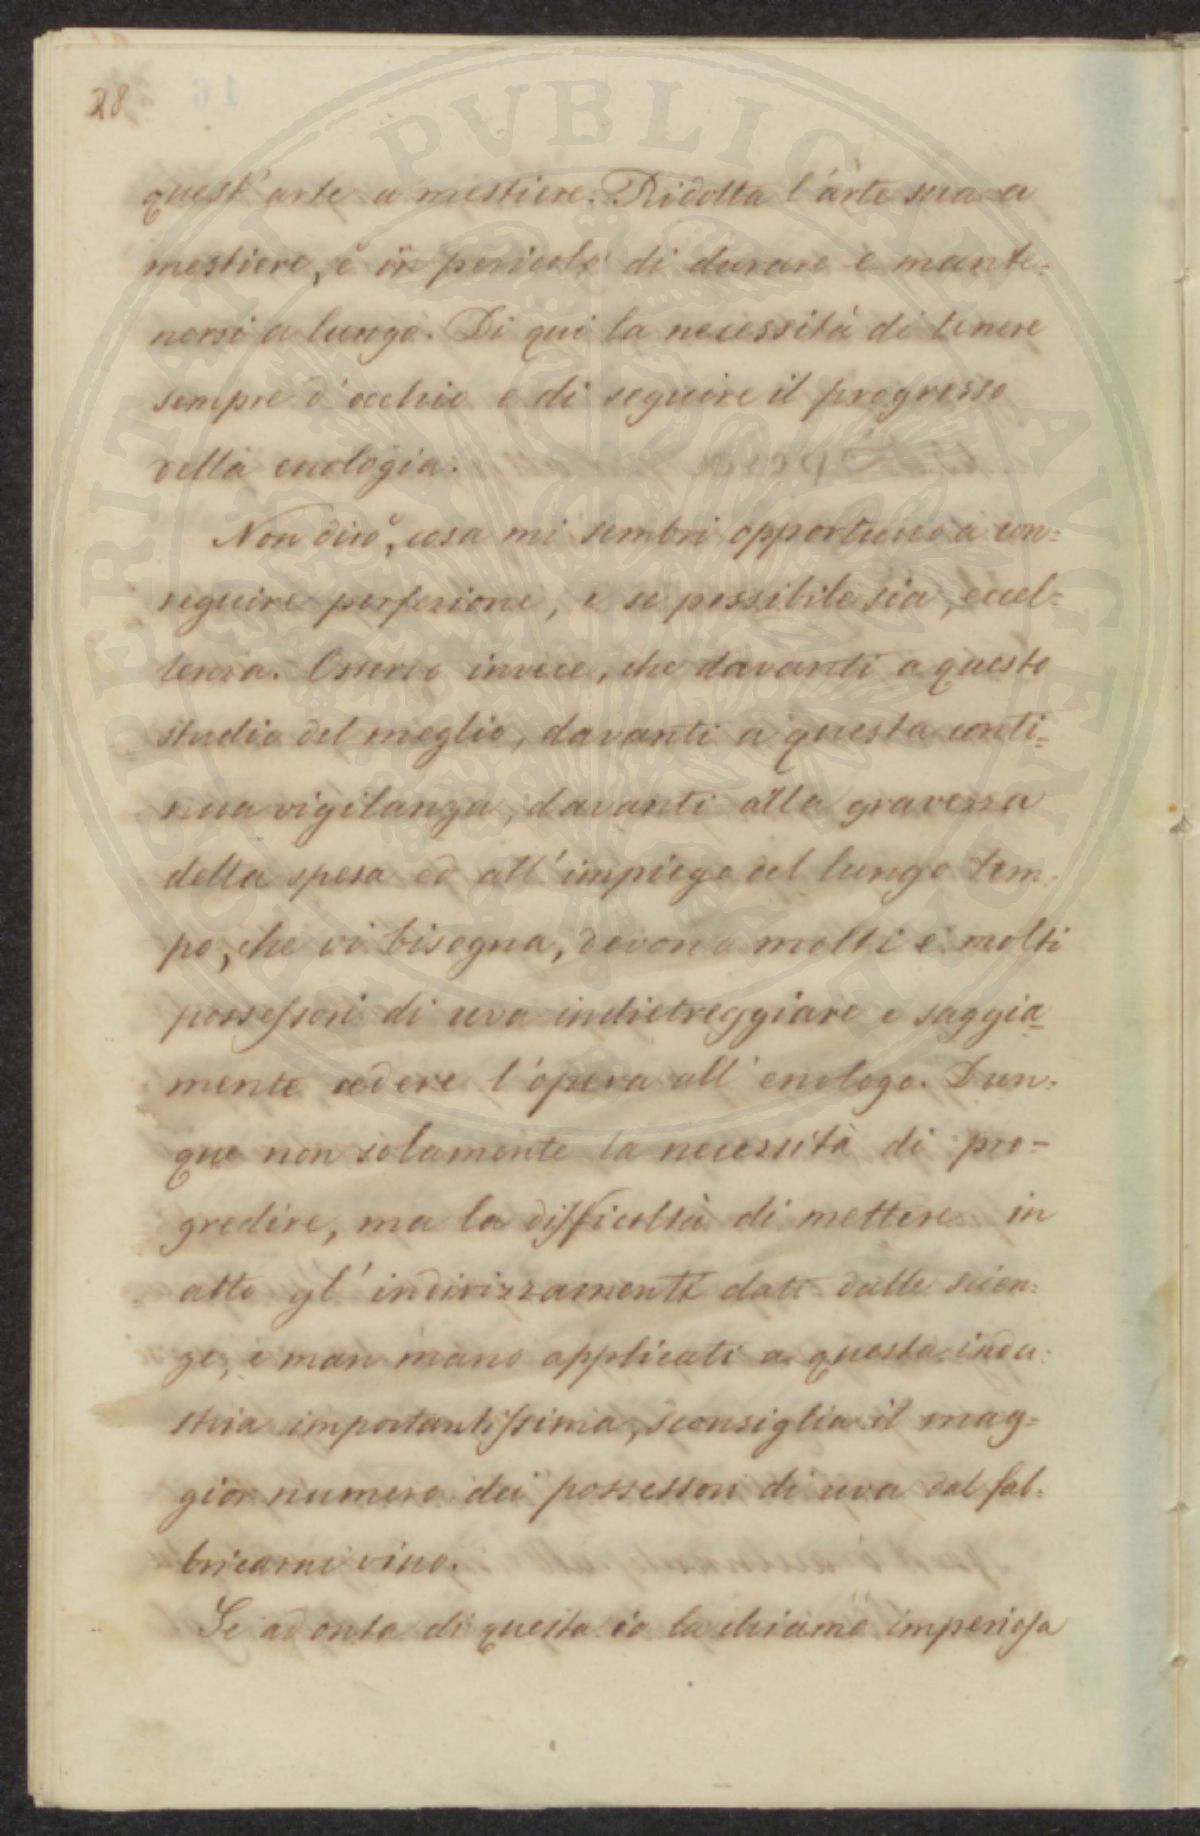 28
quest'arte a mestiere. Ridotta l'arte sua a
mestiere, è in pericolo di durare e mante=
nersi a lungo. Di qui la necessità di tenere
sempre d'occhio e di seguire il progresso
della enologia.
Non dirò, cosa mi sembri opportuno a con=
seguire perfezione, e se possibile sia, eccel=
lenza. Osservo invece, che davanti a questo
studio del meglio, davanti a questa conti=
nua vigilanza, davanti alla gravezza
della spesa ed all'impiego del lungo tem=
po, che vi bisogna, devono molti e molti
possessori di uva indietreggiare e saggia=
mente cedere l'opera all'enologo. Dun=
que non solamente la necessità di pro=
gredire, ma la difficoltà di mettere in
atto gl'indirizzamenti dati dalle scien=
ze, e man mano applicati a questa indu=
stria importantissima, sconsiglia il mag=
gior numero dei possessori di uva dal fab=
bricarni vino.
Se ad onta di questa io la chiamo imperiosa
PVBLICAE AVGENDAE